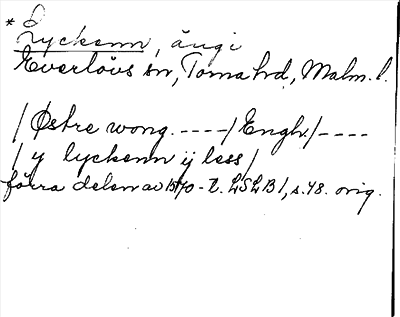 * Lyckenn, ängi
Everlövs sn, Torna hd, Malm. l.
/ Østre wong. ---- / Engh. / ----
/ y lyckenn ij less /
förra delen av 1570-t. LSLB 1, s. 48. orig.